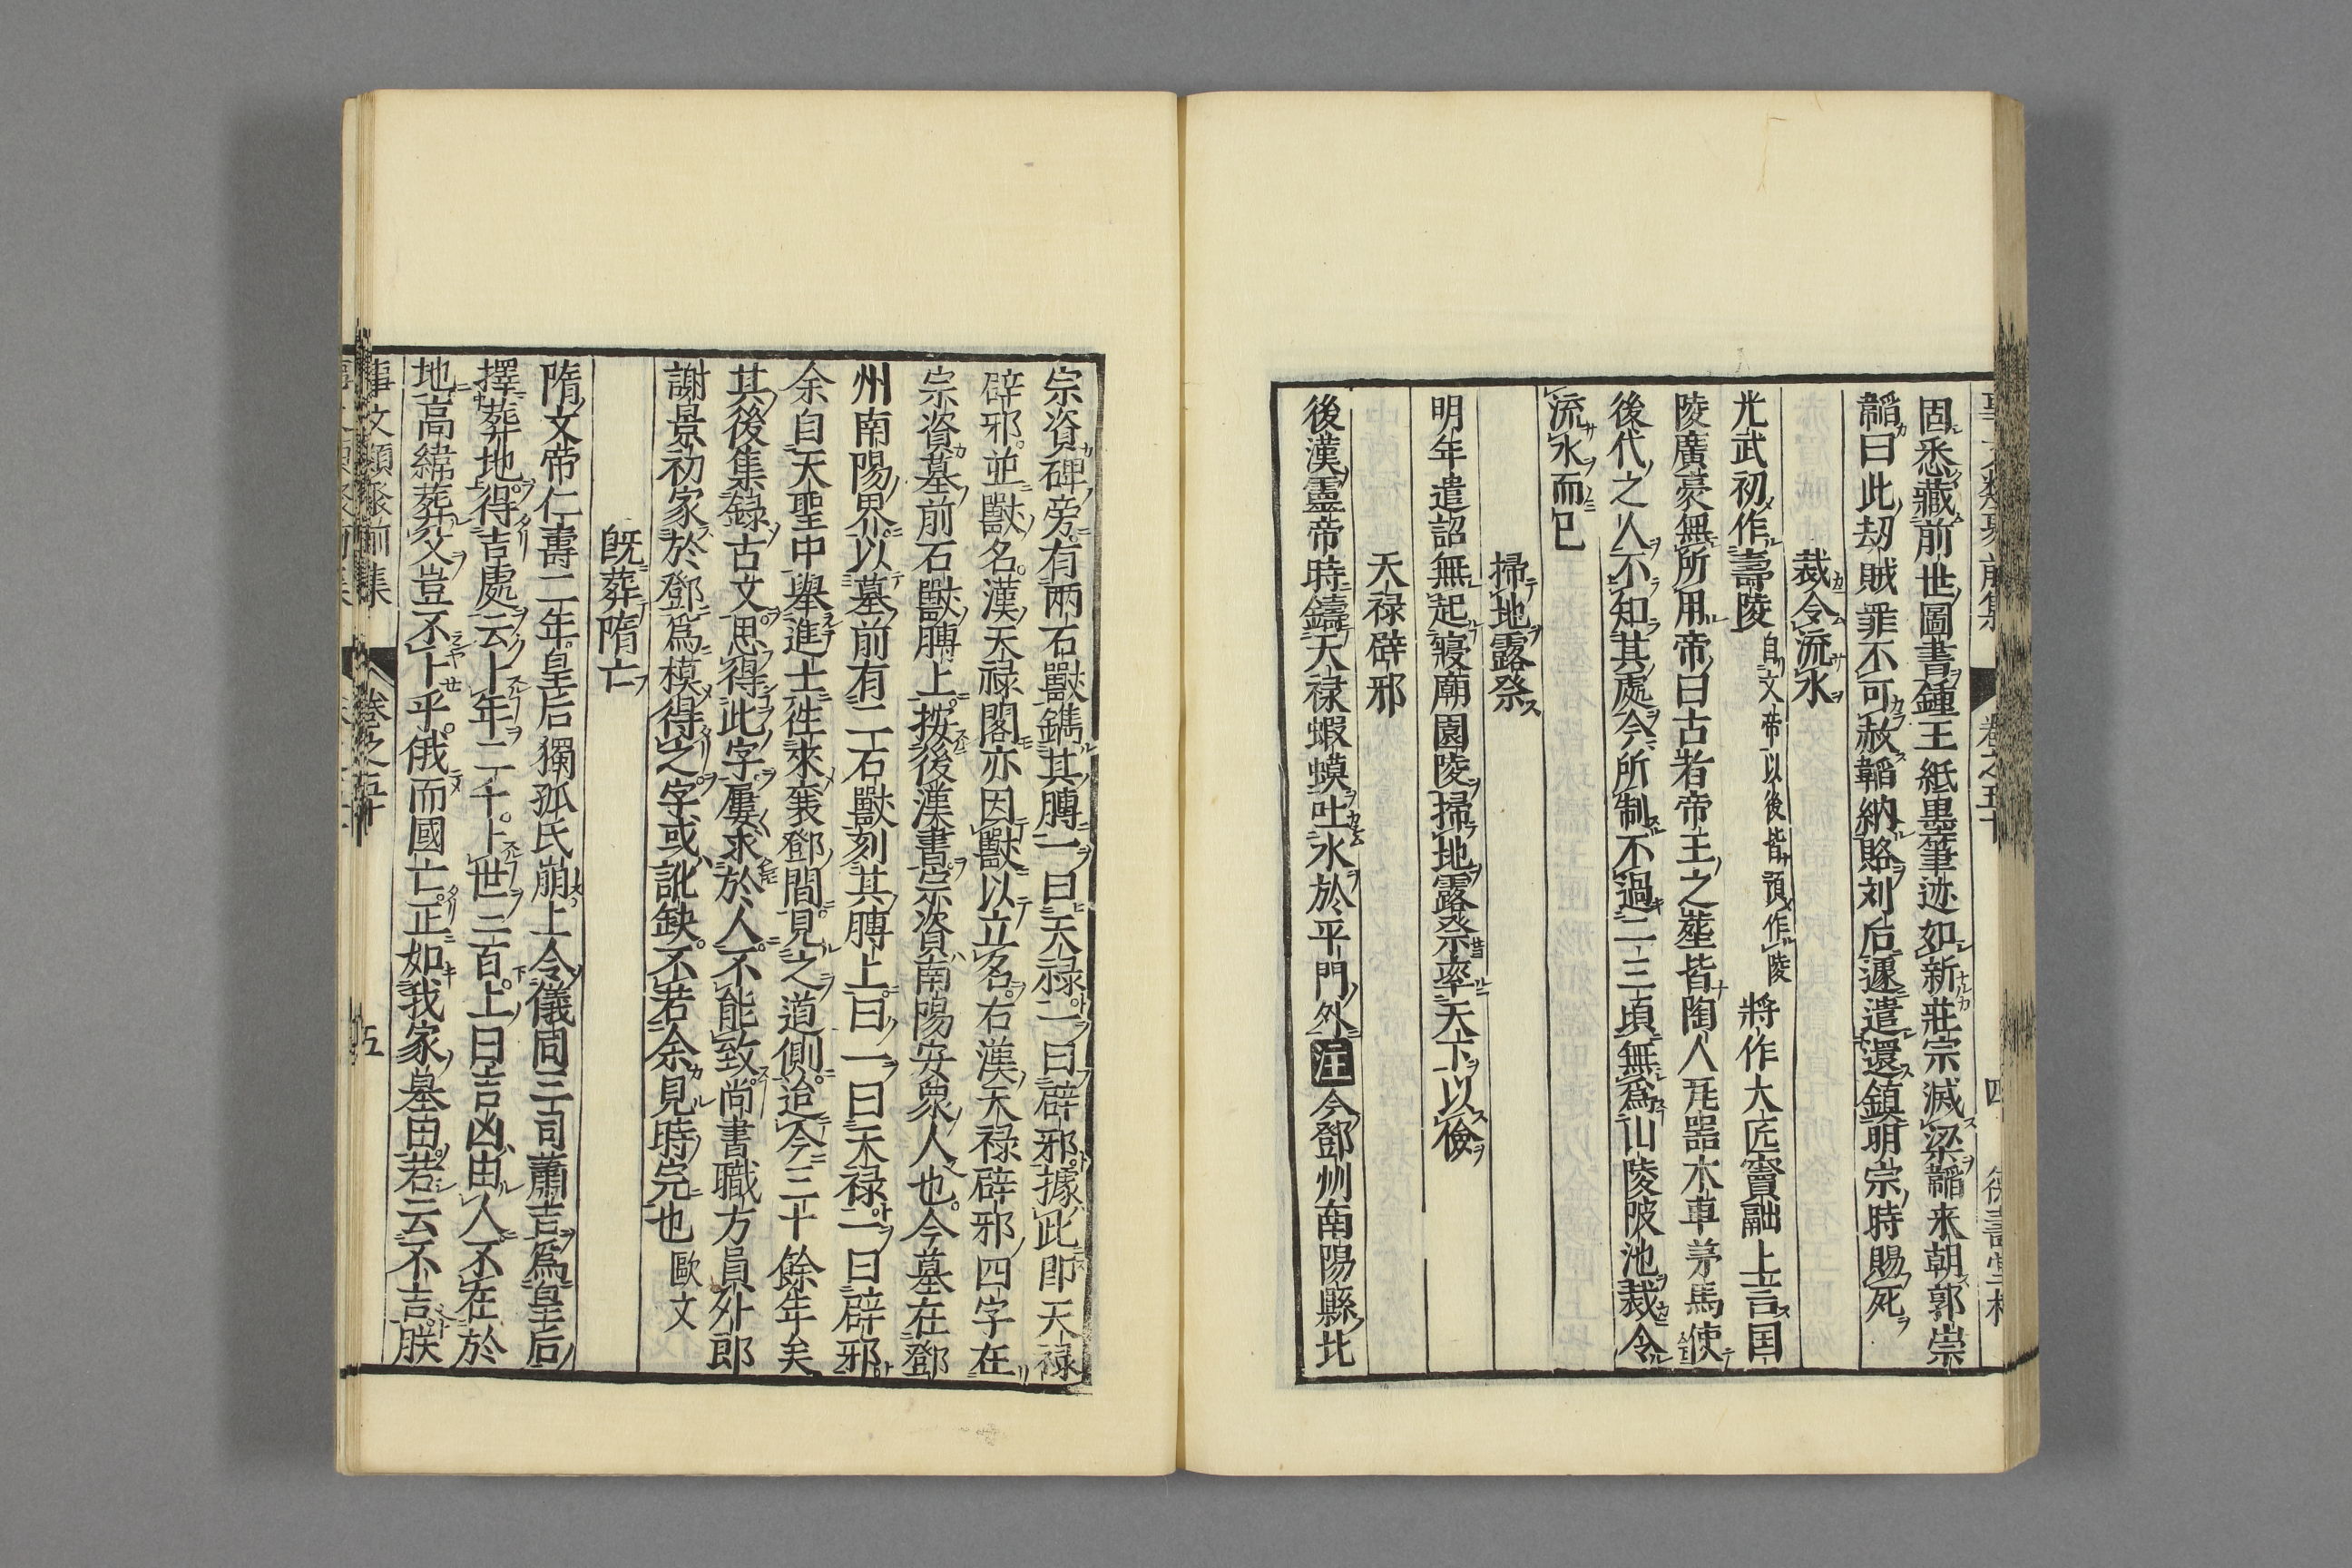 固悉藏前世圖書鍾王紙墨筆迹如新莊宗滅梁韜来朝郭崇
韜曰此刼賊罪不可赦韜納賂刘后遽遣還鎮明宗時賜死
裁令流水
光武初作壽陵自文帝以後皆預作陵將作大匠竇融上言国
陵廣袤無所用帝曰古者帝王之塟皆陶人瓦噐木車茅馬使
後代之人不知其處今所制不過二三頃無爲山陵陂池裁令
流水而已
掃地露祭
明年遣詔無起寝廟園陵掃地露祭率天下以儉
天禄辟邪
後漢靈帝時鑄天禄蝦蟆吐水於平門外注今鄧州南陽縣北
宗資碑旁有兩石獸鐫其膊一曰天禄二曰辟邪據此即天禄
辟邪並獸名漢天禄閣亦因獸以立名右漢天禄辟邪四字在
宗資墓前石獸膊上按後漢書宗資南陽安衆人也今墓在鄧
州南陽界以墓前有二石獸刻其膊上曰一曰天禄二曰辟邪
余自天聖中舉進士徃來襄鄧間見之道側迨今三十餘年矣
其後集録古文思得此字屢求於人不能致尚書職方員外郎
謝景初家於鄧爲模得之字或訛缺不若余見時完也歐文
既葬隋亡
隋文帝仁壽二年皇后獨孤氏崩上令儀同三司蕭吉爲皇后
擇葬地得吉處云卜年二千卜世二百上曰吉凶由人不在於
地高緯葬父豈不卜乎俄而國亡正如我家墓田若云不吉朕
事文類聚前集 卷之五十 五